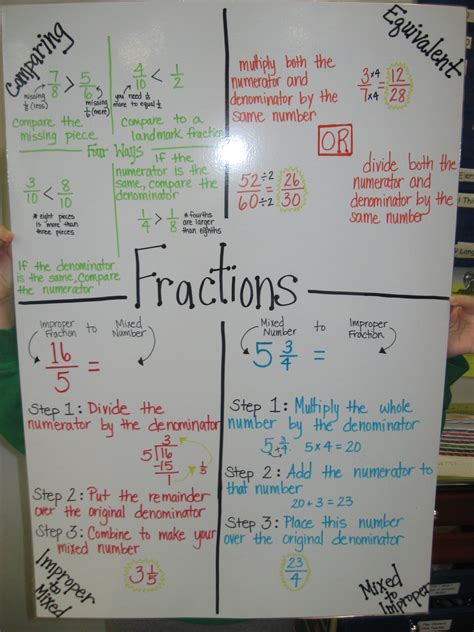 Comparing
7/8 > 5/6
missing 1/8 (less)
missing 1/6 (more)
Compare the
missing piece.
4/10 < 1/2
you need 1/10
more to equal 1/2
Compare to a
landmark fraction
Four Ways
3/10 < 8/10
* eight pieces
is more than
three pieces
If the denominator
is the same, compare
the numerator
If the
numerator is the
same, compare the
denominator
1/4 > 1/8
* fourths
are larger
than eighths
Equivalent
multiply both the
numerator and
denominator by the
same number
3 x4 / 7 x4 = 12/28
OR
52 ÷2 / 60 ÷2 = 26/30
divide both the
numerator and
denominator by the
same number
Fractions
Improper Fraction to Mixed Number
16/5 =
Step 1: Divide the
numerator by the denominator
3
5 16
-15
1
1/5
Step 2: Put the remainder
over the original denominator
Step 3: Combine to make your
mixed number
3 1/5
Improper to Mixed
Mixed Number to Improper Fraction
5 3/4 =
Step 1: Multiply the whole
number by the denominator
5 3/4 5 x 4 = 20
x
Step 2: Add the numerator to
that number
20 + 3 = 23
Step 3: Place this number
over the original denominator
23/4
Mixed to Improper